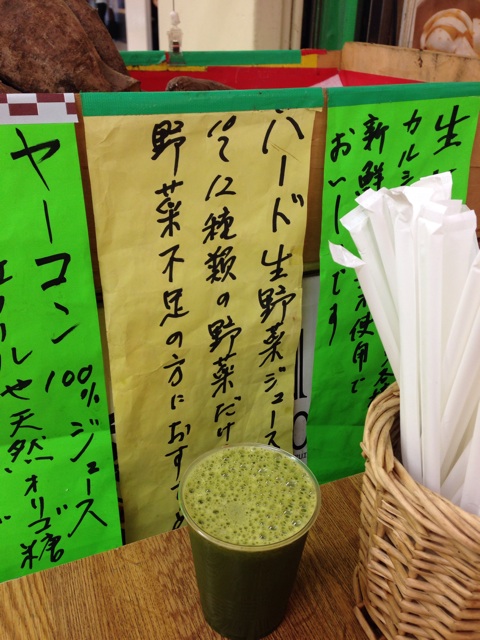 生
カルシ
新鮮
使用で
おいしいです
ハード生野菜ジュース
12種類の野菜だけ
野菜不足の方におす
ヤーコン100%ジュース
や天然オリゴ糖